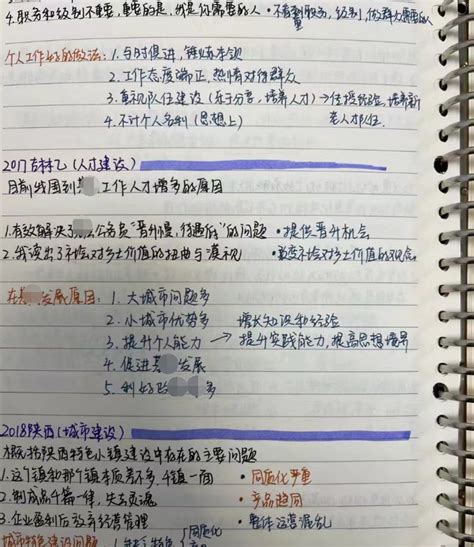 4.职务和级别不重要,重要的是,我是你需要的人 •不看重职务,级别,做群众需要的人
个人工作好的做法:1.与时俱进,锤炼本领
2.工作态度端正,热情对待群众
3.重视队伍建设(乐于分享,培养人才)→传授经验,培养新老人才队伍.
4.不计个人名利(思想上)
2017吉林乙(人才建设)
目前我国到 工作人才增多的原因
1.有效解决了 公务员"晋升慢,待遇低"的问题 •提供晋升机会
2.我读出了社会对乡土价值的扭曲与漠视 • 社会对乡土价值的观念
在 发展原因:1.大城市问题多
2.小城市优势多 增长知识和经验
3.提升个人能力 → 提升实践能力,提高思想境界
4.促进 发展
5.利好 多
2018陕西(城市建设)
概括陕西特色小镇建设中存在的主要问题
1.这个镇和那个镇本质差不多,千镇一面 •同质化严重
2.制成品千篇一律,失去灵魂 •产品趋同
3.企业盈利后放弃经营管理 •整体运营混乱
城市特色建设问题 1.缺乏特色 同质化